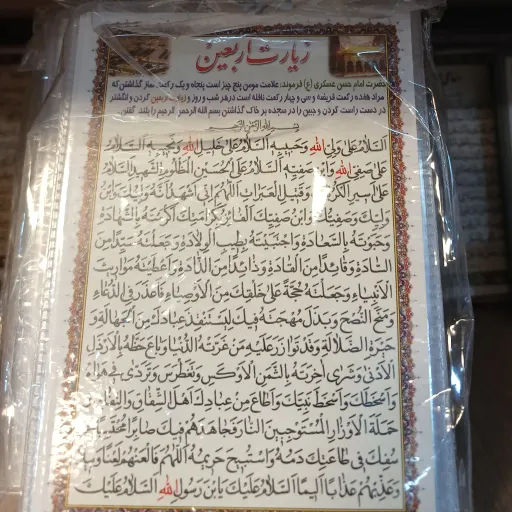 زیارت اربعین
حضرت امام حسن عسکری (ع) فرموند: علامت مومن پنج چیز است پنجاه و یک رکعت نماز گذاشتن که
مراد هفده رکعت فریضه و سی و چهار رکعت نافله است درهر شب و روز و زیارت اربعین کردن و انگشتر
در دست راست کردن و جبین را در سجده بر خاک گذاشتن بسم الله الرحمن الرحیم را بلند گفتن
بسم الله الرحمن الرحیم
اَلسَّلامُ عَلى وَلِيِّ اللهِ وَحَبيبِهِ اَلسَّلامُ عَلى خَليلِ اللهِ وَنَجيبِهِ اَلسَّلامُ
عَلى صَفِيِّ اللهِ وَابْنِ صَفِيِّهِ اَلسَّلامُ عَلَى الْحُسَيْنِ الْمَظْلُومِ الشَّهيدِ اَلسَّلامُ
عَلى اَسيرِ الْكُرُباتِ وَقَتيلِ الْعَبَراتِ اَللّهُمَّ اِنّي اَشْهَدُ اَنَّهُ وَلِيُّكَ وَابْنُ
وَلِيِّكَ وَصَفِيُّكَ وَابْنُ صَفِيِّكَ الْفائِزُ بِكَرامَتِكَ اَكْرَمْتَهُ بِالشَّهادَةِ
وَحَبَوْتَهُ بِالسَّعادَةِ وَاجْتَبَيْتَهُ بِطيبِ الْوِلادَةِ وَجَعَلْتَهُ سَيِّداً مِنَ
السّادَةِ وَقائِداً مِنَ الْقادَةِ وَذائِداً مِنَ الذّادَةِ وَاَعْطَيْتَهُ مَواريثَ
الْاَنْبِياءِ وَجَعَلْتَهُ حُجَّةً عَلى خَلْقِكَ مِنَ الْاَوْصِياءِ فَاَعْذَرَ فِي الدُّعاءِ
وَمَنَحَ النُّصْحَ وَبَذَلَ مُهْجَتَهُ فيكَ لِيَسْتَنْقِذَ عِبادَكَ مِنَ الْجَهالَةِ وَ
حَيْرَةِ الضَّلالَةِ وَقَدْ تَوازَرَ عَلَيْهِ مَنْ غَرَّتْهُ الدُّنْيا وَباعَ حَظَّهُ بِالْاَرْذَلِ
الْاَدْنى وَشَرى آخِرَتَهُ بِالثَّمَنِ الْاَوْكَسِ وَتَغَطْرَسَ وَتَرَدّى في هَواهُ
وَاَسْخَطَكَ وَاَسْخَطَ نَبِيَّكَ وَاَطاعَ مِنْ عِبادِكَ اَهْلَ الشِّقاقِ وَالنِّفاقِ وَ
حَمَلَةَ الْاَوْزارِ الْمُسْتَوْجِبينَ النّارَ فَجاهَدَهُمْ فيكَ صابِراً مُحْتَسِباً
سُفِكَ في طاعَتِكَ دَمُهُ وَاسْتُبيحَ حَريمُهُ اَللّهُمَّ فَالْعَنْهُمْ لَعْناً وَبيلاً
وَعَذِّبْهُمْ عَذاباً اَليماً اَلسَّلامُ عَلَيْكَ يَا بْنَ رَسُولِ اللهِ اَلسَّلامُ عَلَيْكَ